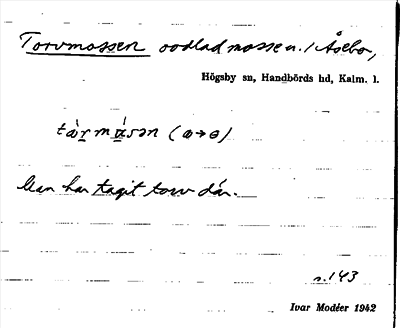 Torvmossen oodlad mosse n. i Åsebo,
Högsby sn, Handbörds hd, Kalm. l.
tàr̲mɑ̲́sən (ɑ→ɵ)
Man har tagit torv där.
s.143
Ivar Modéer 1942